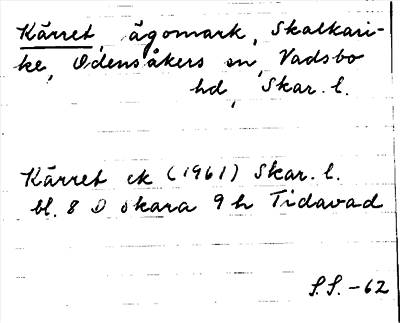 Kärret, ägomark, Skalkari-
ke, Odensåkers sn, Vadsbo
hd, Skar. l.
Kärret ek (1961) Skar. l.
bl. 8 D Skara 9 h Tidavad
S.S. -62